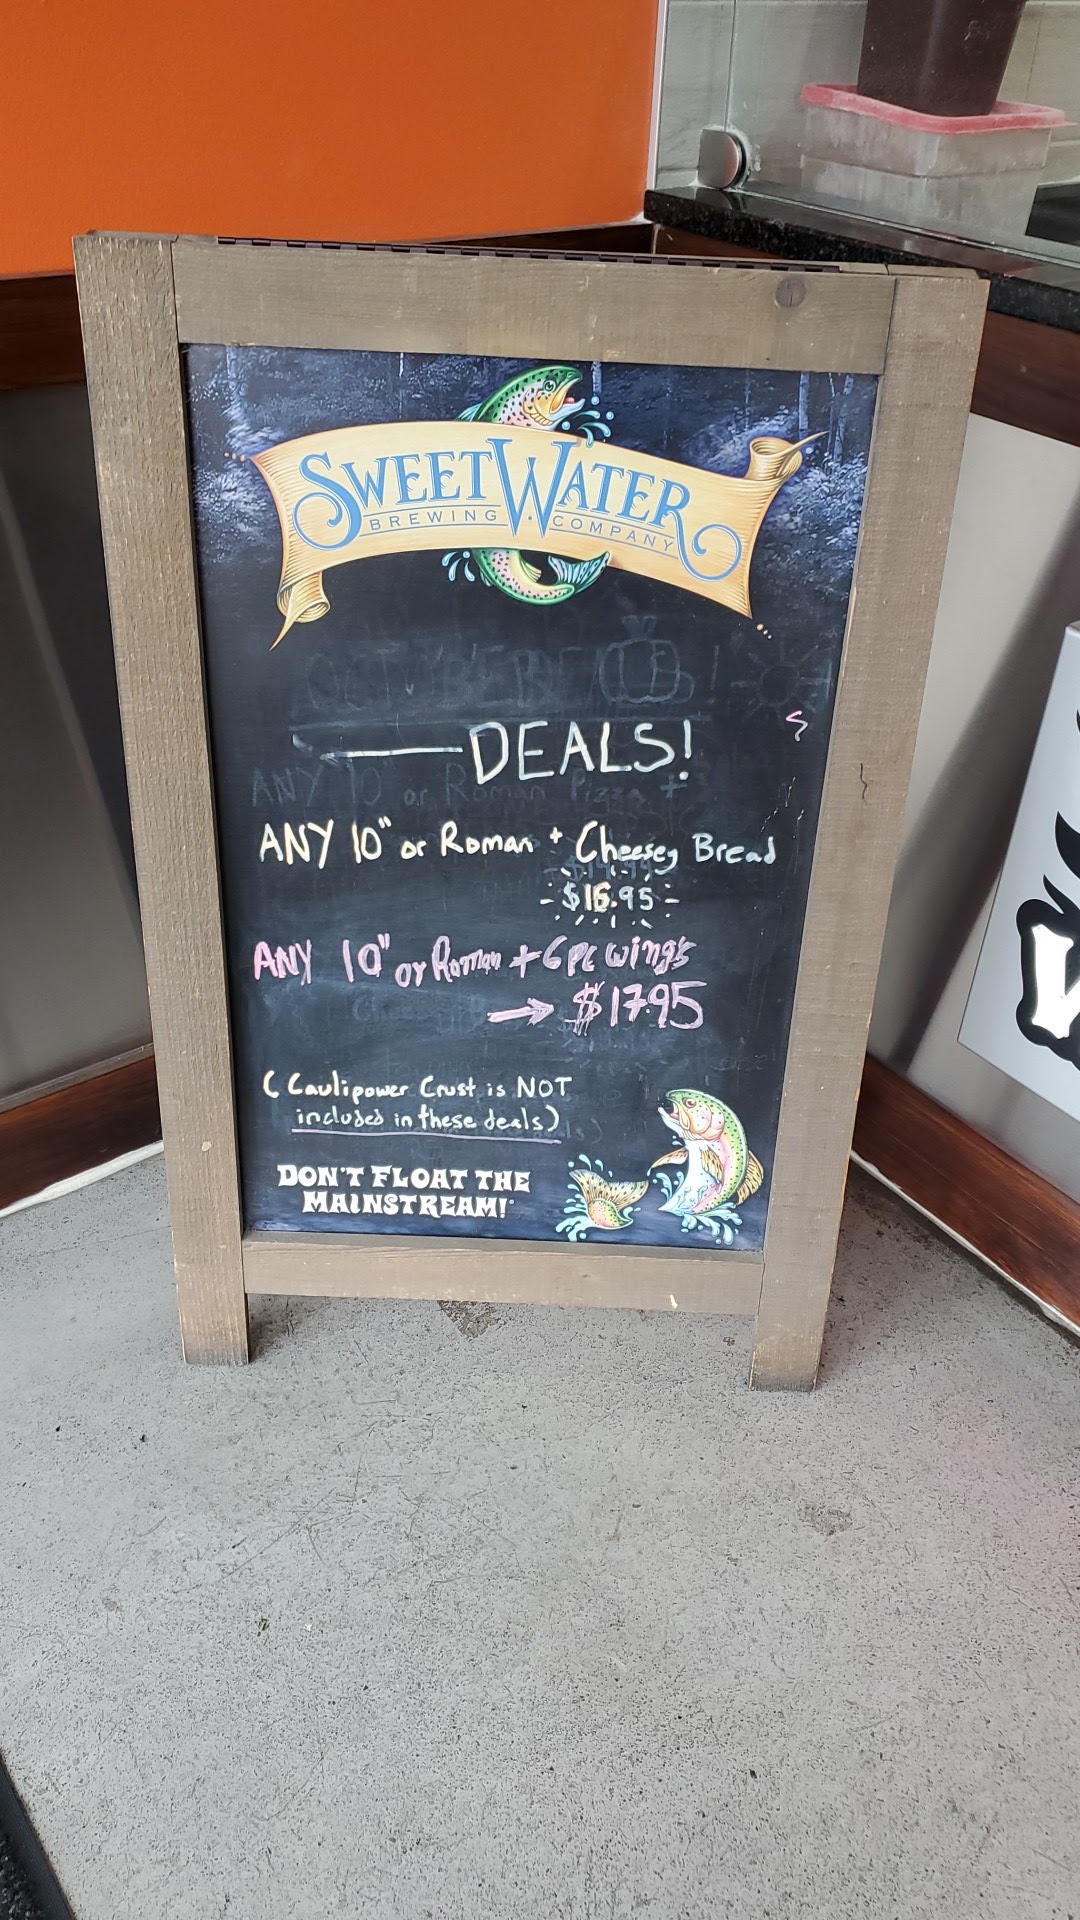 SWEETWATER
BREWING COMPANY
OCTOBER
DEALS!
ANY 10 or Roman Pizza +
ANY 10" or Roman + Cheesey Bread
$16.95
ANY 10" or Roman + 6 pc wings
→ $17.95
(Caulipower Crust is NOT
included in these deals)
DON'T FLOAT THE
MAINSTREAM!